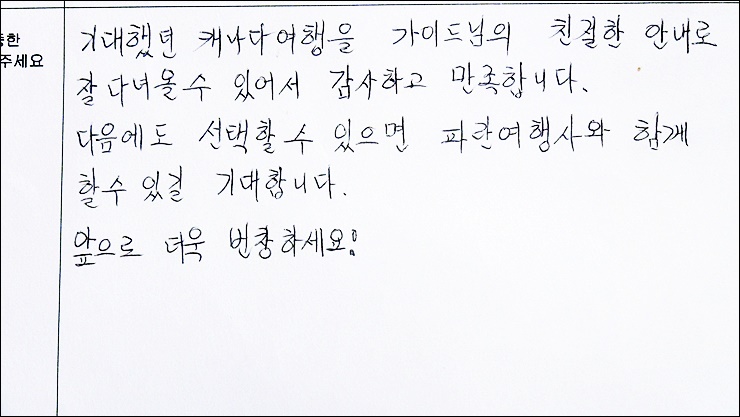 기대했던 캐나다여행을 가이드님의 친절한 안내로
주세요
잘 다녀올수 있어서 감사하고 만족합니다.
다음에도 선택할수 있으면 파란여행사와 함께
할수 있길 기대합니다.
앞으로 더욱 번창하세요!